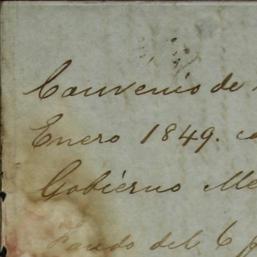 Convenio de
Enero 1849.
Gobierno Me
Fondo del 6 p